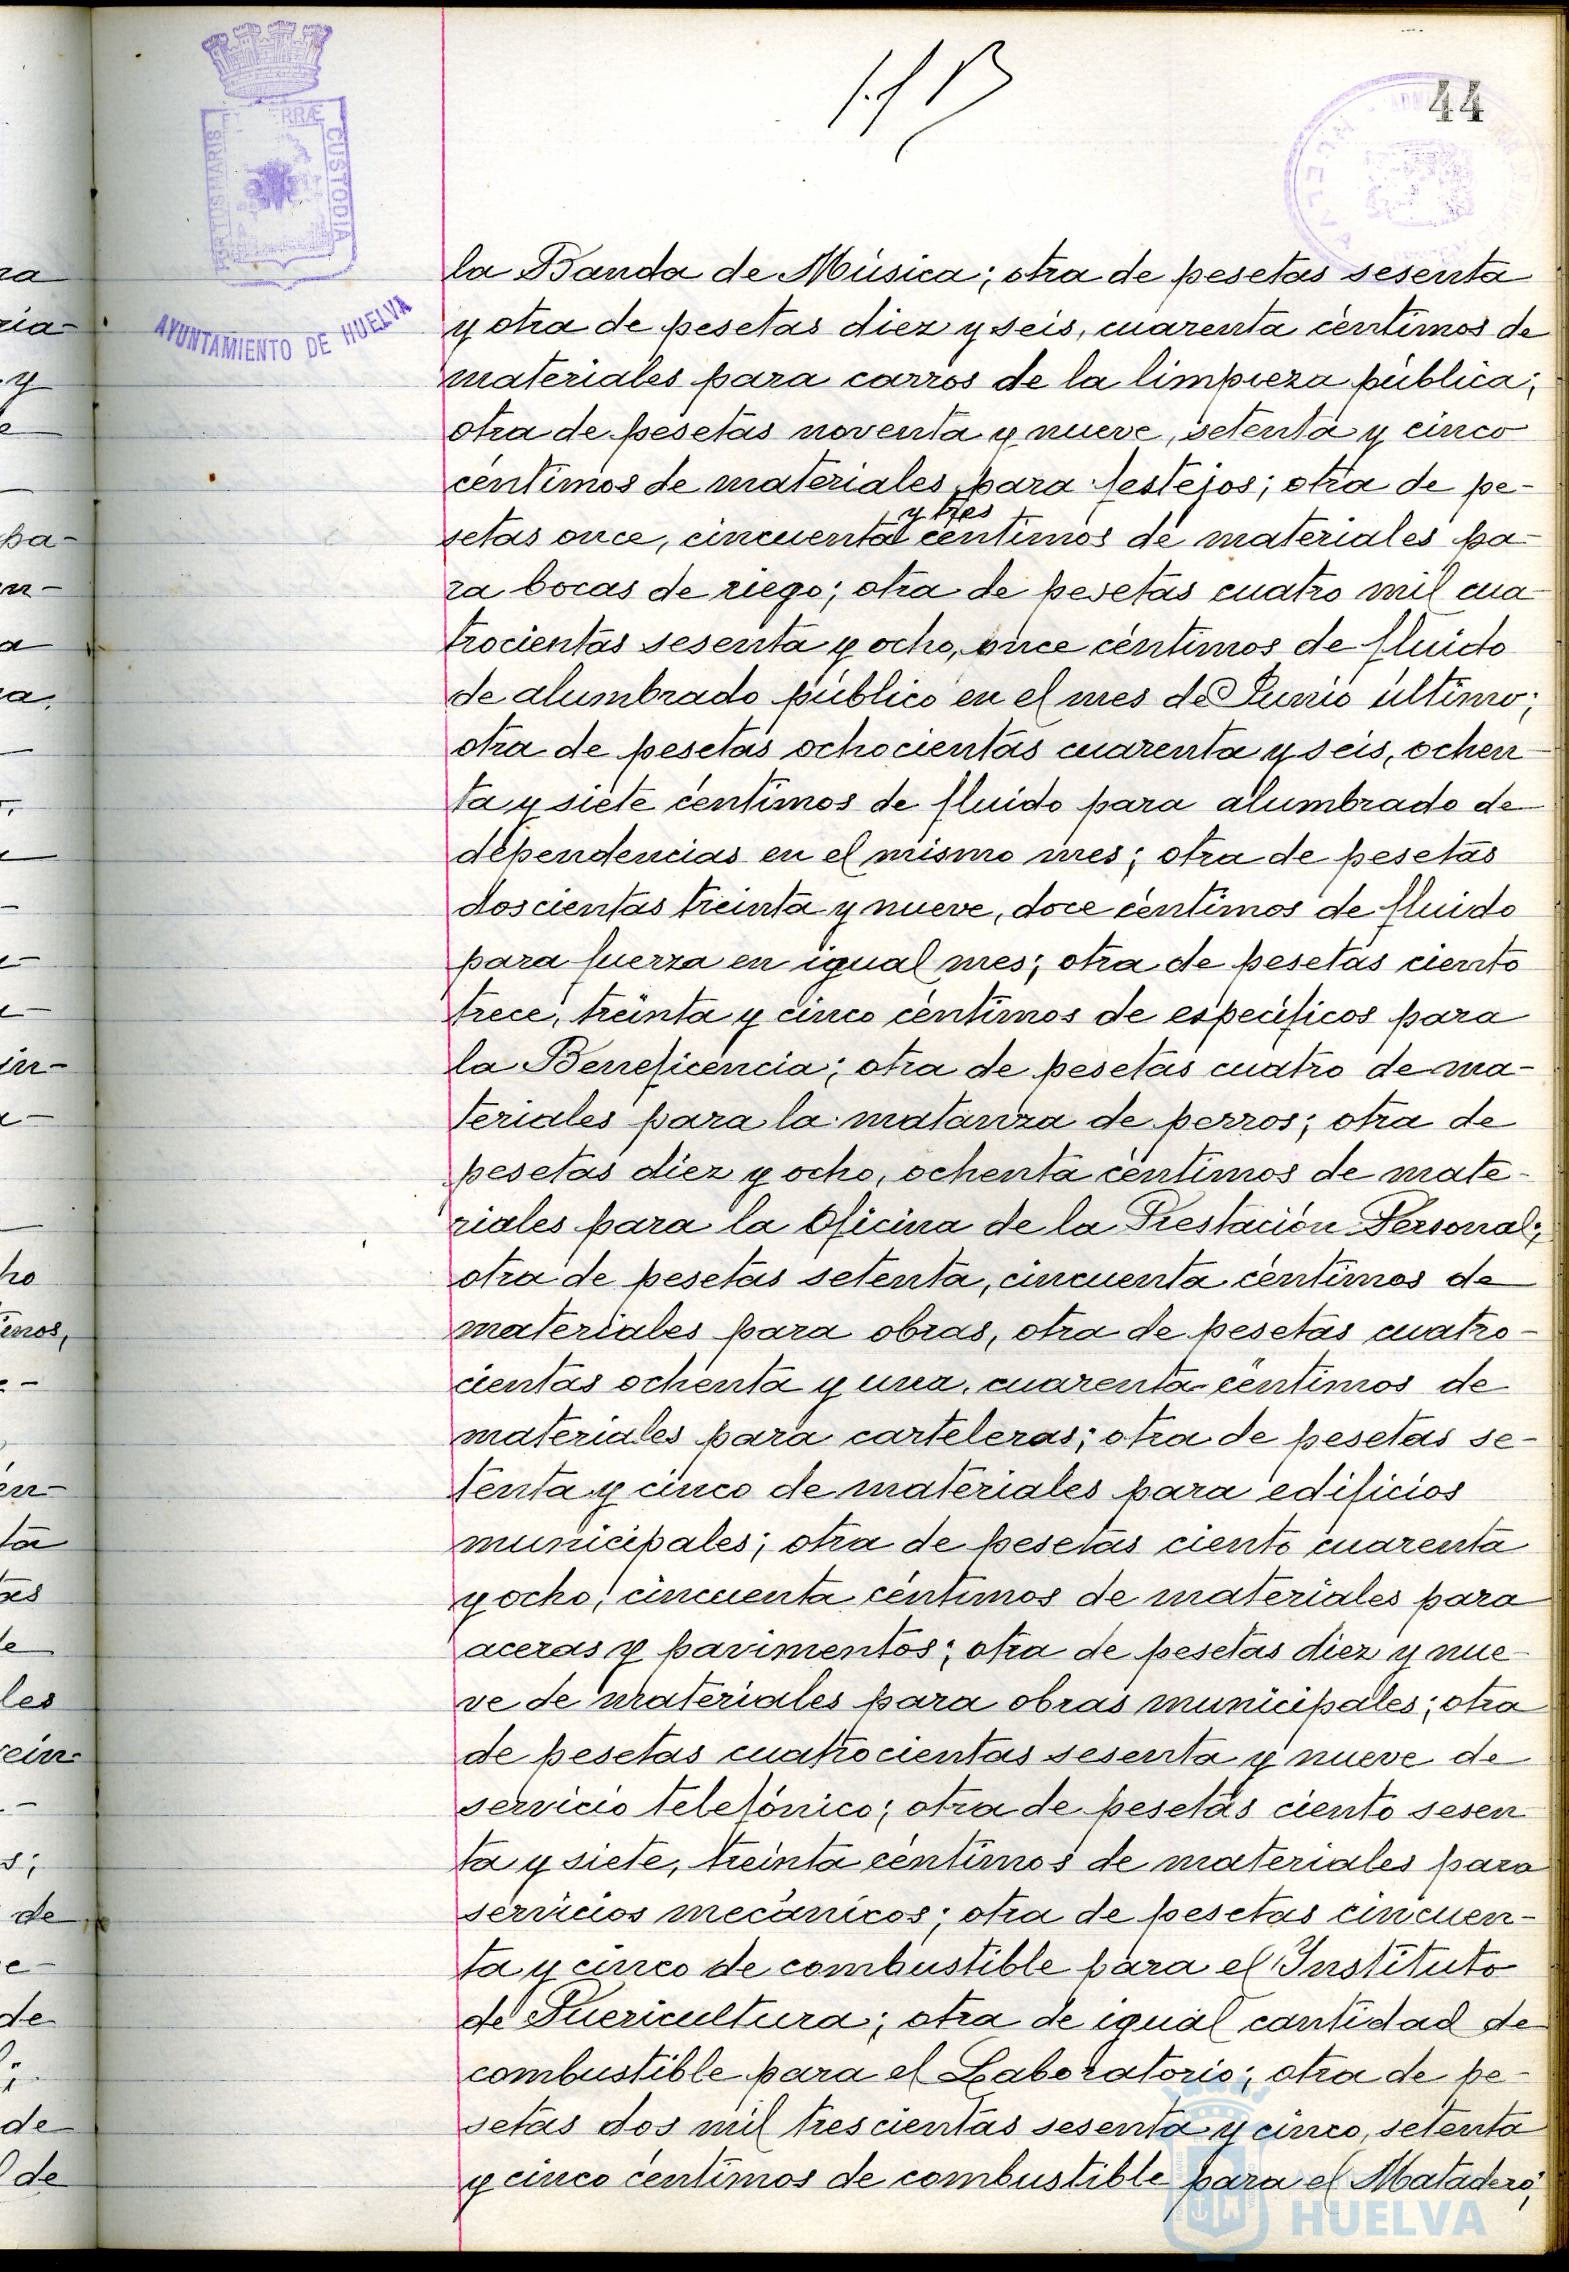 44
PORTUS MARIS
ET TERRÆ
CUSTODIA
AYUNTAMIENTO DE HUELVA
HUELVA
la Banda de Música; otra de pesetas sesenta
y otra de pesetas diez y seis, cuarenta céntimos de
materiales para carros de la limpieza pública;
otra de pesetas noventa y nueve, setenta y cinco
céntimos de materiales para festejos; otra de pe-
y tres
setas once, cincuenta céntimos de materiales pa-
ra bocas de riego; otra de pesetas cuatro mil cua-
trocientas sesenta y ocho, once céntimos de fluido
de alumbrado público en el mes de Junio último;
otra de pesetas ochocientas cuarenta y seis, ochen-
ta y siete céntimos de fluido para alumbrado de
dependencias en el mismo mes; otra de pesetas
doscientas treinta y nueve, doce céntimos de fluido
para fuerza en igual mes; otra de pesetas ciento
trece, treinta y cinco céntimos de específicos para
la Beneficencia; otra de pesetas cuatro de ma-
teriales para la matanza de perros; otra de
pesetas diez y ocho, ochenta céntimos de mate-
riales para la Oficina de la Prestación Personal;
otra de pesetas setenta, cincuenta céntimos de
materiales para obras, otra de pesetas cuatro-
cientas ochenta y una, cuarenta céntimos de
materiales para carteleras; otra de pesetas se-
tenta y cinco de materiales para edificios
municipales; otra de pesetas ciento cuarenta
y ocho, cincuenta céntimos de materiales para
aceras y pavimentos; otra de pesetas diez y nue-
ve de materiales para obras municipales; otra
de pesetas cuatrocientas sesenta y nueve de
servicio telefónico; otra de pesetas ciento sesen
ta y siete, treinta céntimos de materiales para
servicios mecánicos; otra de pesetas cincuen-
ta y cinco de combustible para el Instituto
de Puericultura; otra de igual cantidad de
combustible para el Laboratorio; otra de pe-
setas dos mil trescientas sesenta y cinco, setenta
y cinco céntimos de combustible para el Matadero;
HUELVA